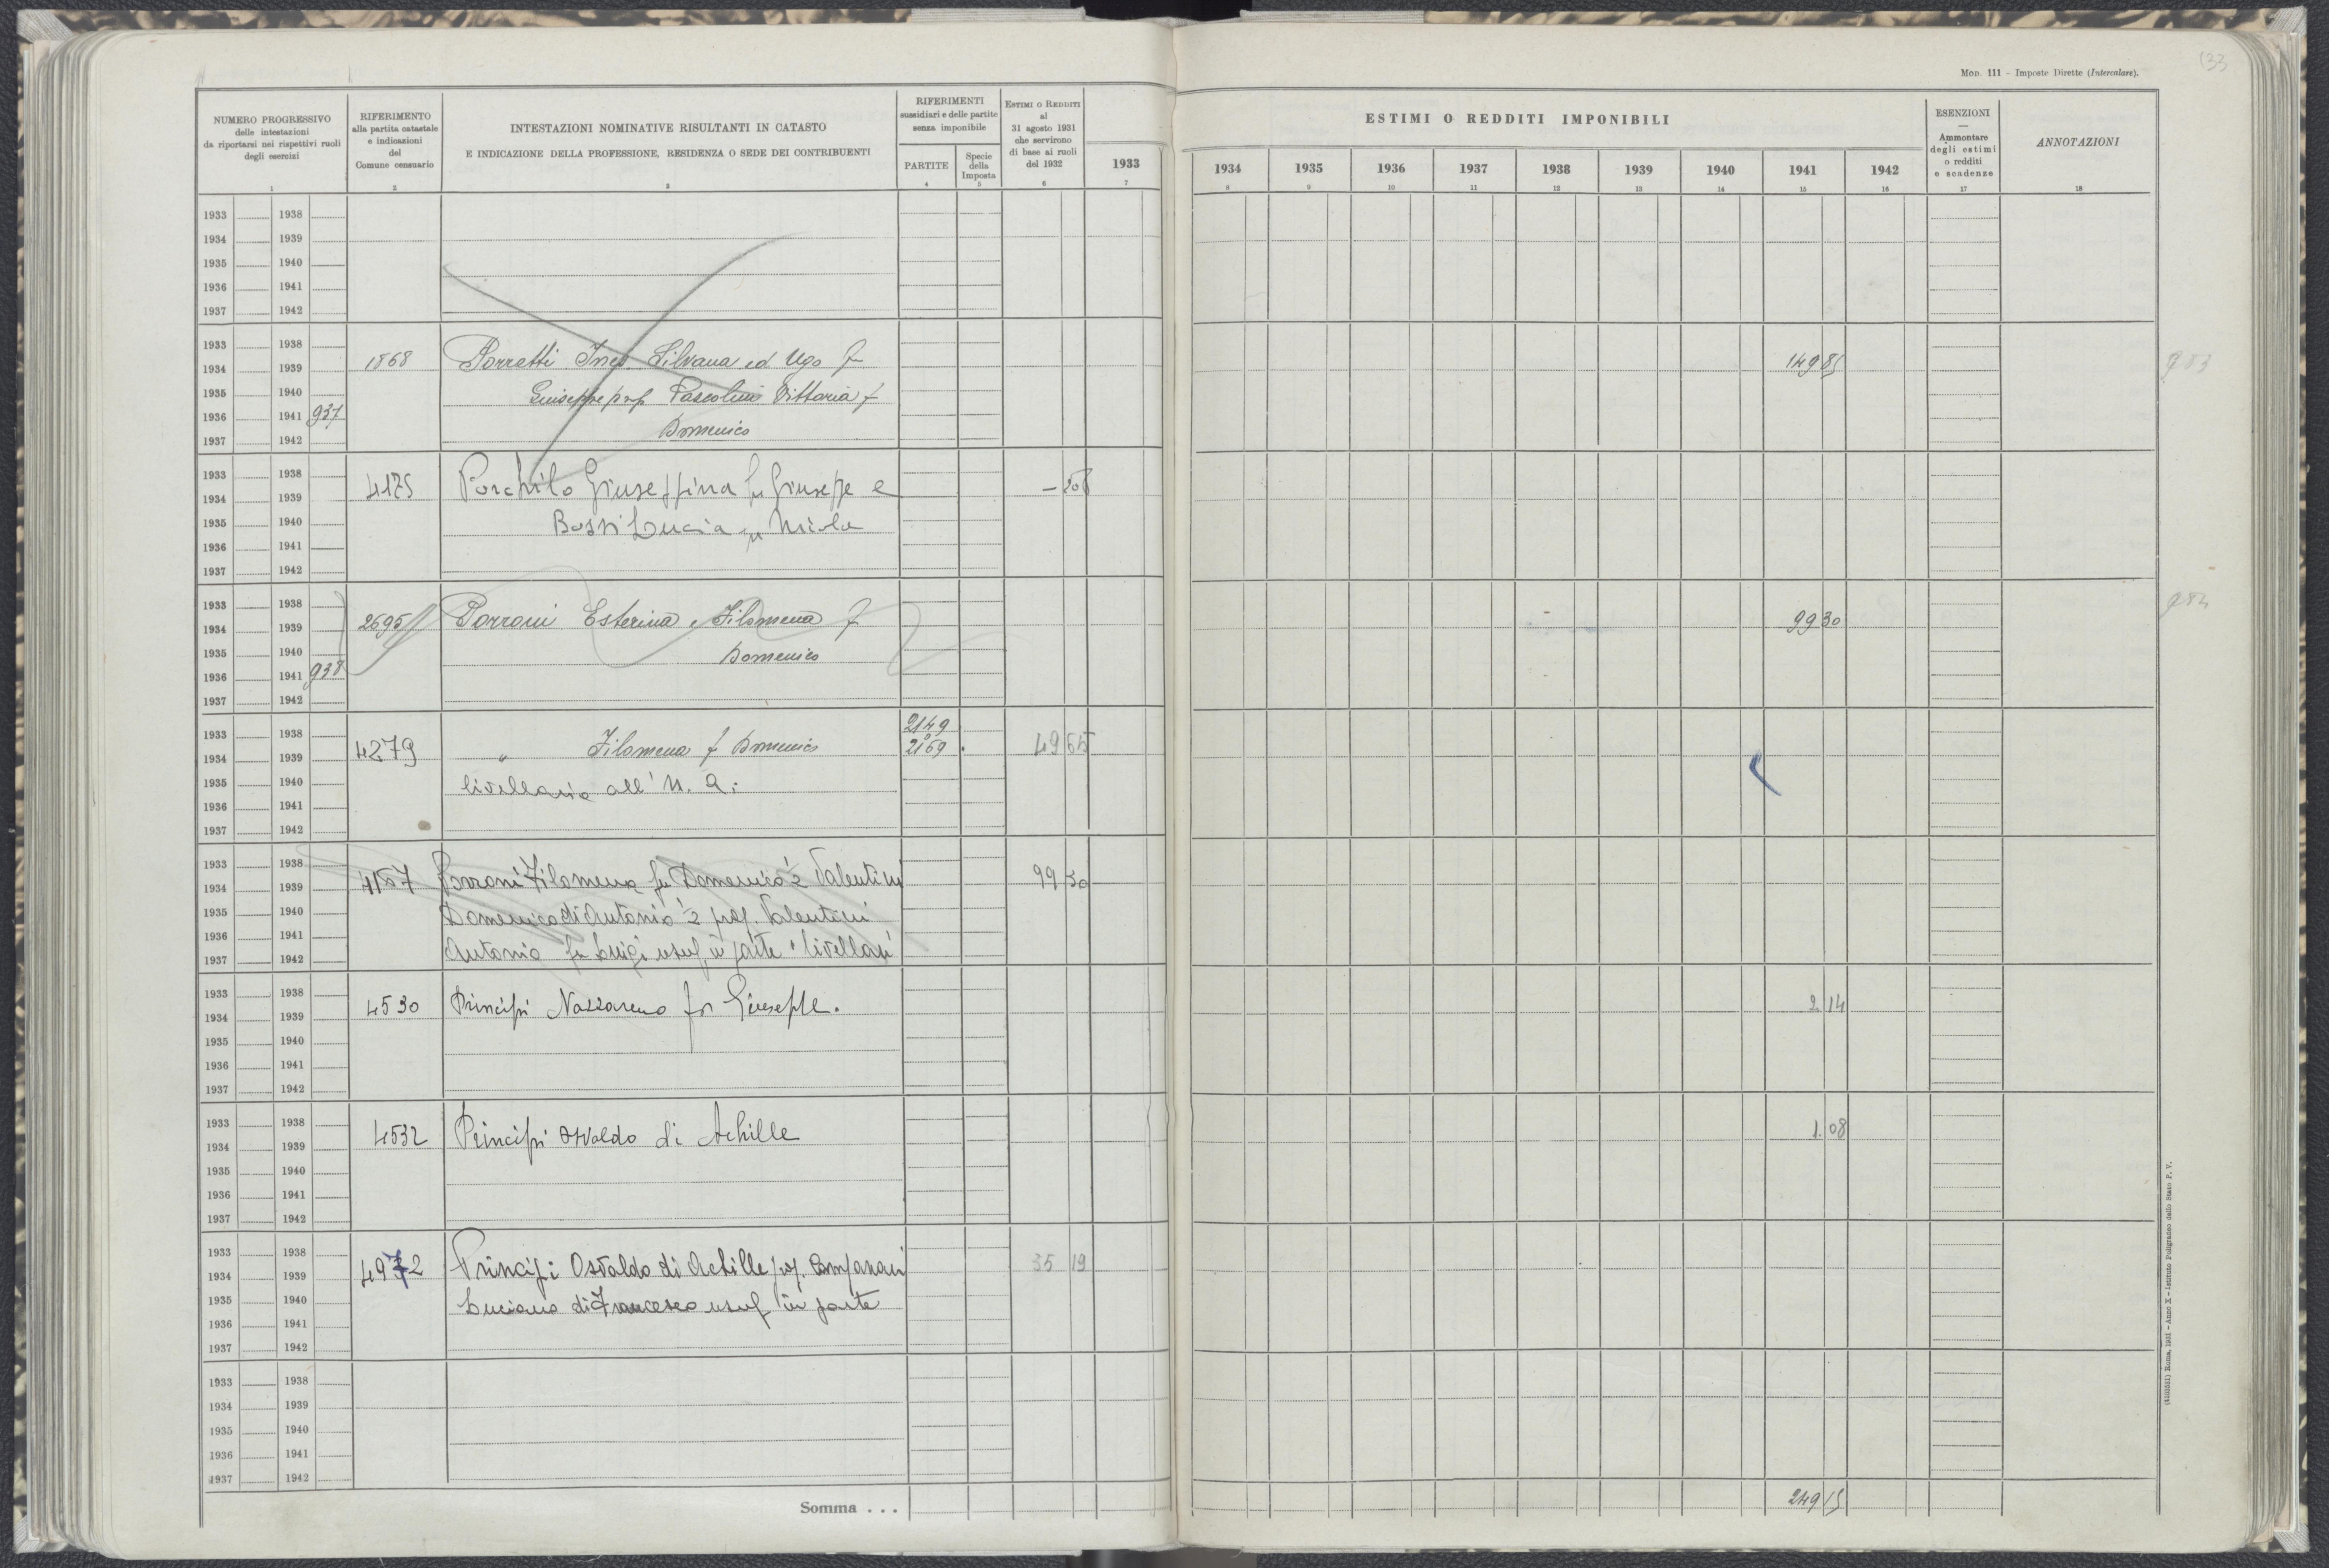 133
MOD. 111 - Imposte Dirette (Intercalare).
NUMERO PROGRESSIVO
delle intestazioni
da riportarsi nei rispettivi ruoli
degli esercizi
1
RIFERIMENTO
alla partita catastale
e indicazioni
del
Comune censuario
2
INTESTAZIONI NOMINATIVE RISULTANTI IN CATASTO
E INDICAZIONE DELLA PROFESSIONE, RESIDENZA O SEDE DEI CONTRIBUENTI
3
RIFERIMENTI
sussidiari e delle partite
senza imponibile
PARTITE
4
Specie
della
Imposta
5
ESTIMI O REDDITI
al
31 agosto 1931
che servirono
di base ai ruoli
del 1932
6
1933
7
ESTIMI O REDDITI IMPONIBILI
1934 1935 1936 1937 1938 1939 1940 1941 1942
8 9 10 11 12 13 14 15 16
ESENZIONI
—
Ammontare
degli estimi
o redditi
e scadenze
17
ANNOTAZIONI
18
1933 1938
1934 1939
1935 1940
1936 1941
1937 1942
1933 1938
1934 1939 1868 Porretti Ines Silvana ed Ugo f 149 85 983
1935 1940 Giuseppe prop Pascolini Vittoria f
1936 1941 937
1937 1942 Domenico
1933 1938
1934 1939 4175 Porchilo Giuseppina fu Giuseppe e
1935 1940 Bossi Lucia fu Nicola
1936 1941
1937 1942
1933 1938
1934 1939 2695 Porroni Esterina e Filomena f 99 30 984
1935 1940 Domenico
1936 1941 938
1937 1942
1933 1938 2149
1934 1939 4279 " Filomena f Domenico 2169 49 65
1935 1940 livellaria all' U. A.
1936 1941
1937 1942
1933 1938
1934 1939 Porroni Filomena fu Domenico ½ Valentini 99 30
1935 1940 Domenico di Antonio ½ prop. Valentini
1936 1941
1937 1942 Antonio fu Luigi usuf in parte livellari
1933 1938
1934 1939 4530 Principi Nazzareno fu Giuseppe. 2 14
1935 1940
1936 1941
1937 1942
1933 1938
1934 1939 4532 Principi Osvaldo di Achille 1.08
1935 1940
1936 1941
1937 1942
1933 1938
1934 1939 4972 Principi Osvaldo di Achille prop. Companari 35 19
1935 1940 Luciano di Francesco usuf in parte
1936 1941
1937 1942
1933 1938
1934 1939
1935 1940
1936 1941
1937 1942
Somma . . . 249 15
(4103531) Roma, 1931 - Anno X - Istituto Poligrafico dello Stato P. V.